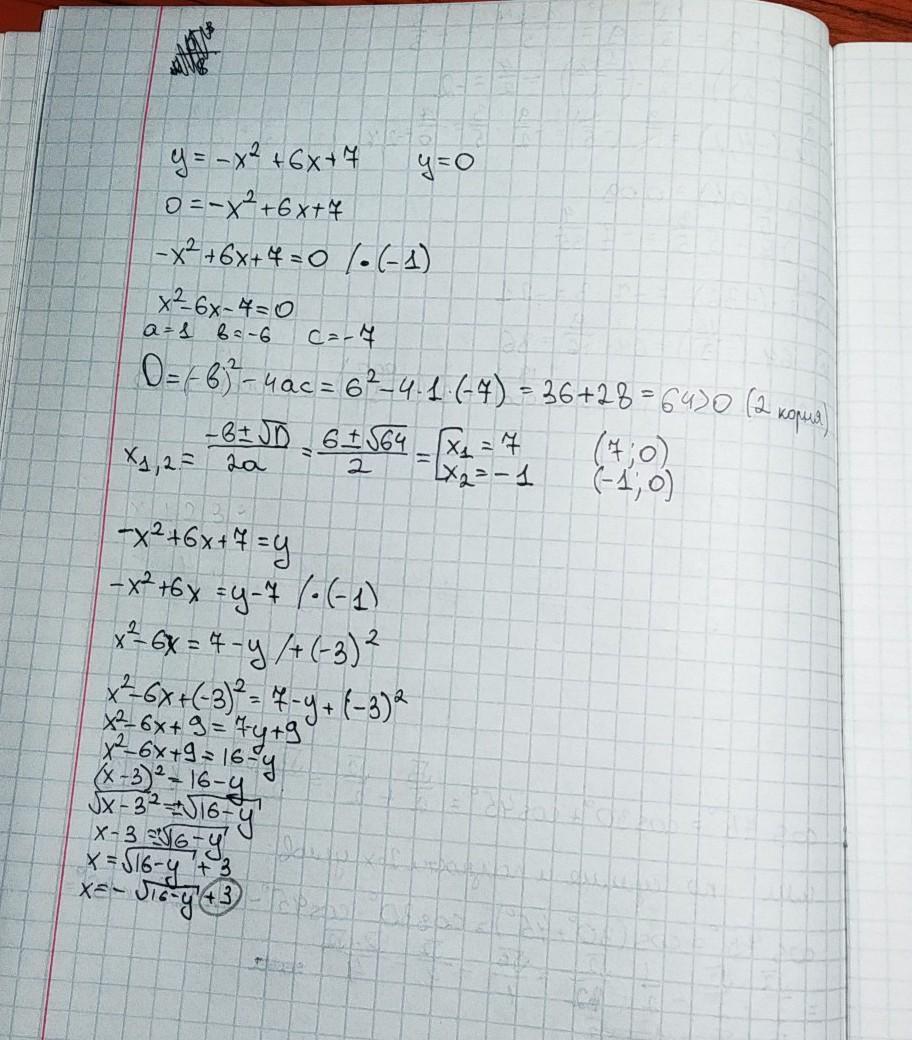 y = -x² + 6x + 7 y = 0
0 = -x² + 6x + 7
-x² + 6x + 7 = 0 /·(-1)
x² - 6x - 7 = 0
a = 1 в = -6 c = -7
D = (-в)² - 4ac = 6² - 4·1·(-7) = 36 + 28 = 64 > 0 (2 корня)
x₁,₂ = (-в ± √D)/2a = (6 ± √64)/2 = [x₁ = 7 (7; 0)
x₂ = -1 (-1; 0)
-x² + 6x + 7 = y
-x² + 6x = y - 7 /·(-1)
x² - 6x = 7 - y /+(-3)²
x² - 6x + (-3)² = 7 - y + (-3)²
x² - 6x + 9 = 7 - y + 9
x² - 6x + 9 = 16 - y
(x - 3)² = 16 - y
√x - 3² = ±√16 - y
x - 3 = ±√16 - y
x = √16 - y + 3
x = -√16 - y + 3